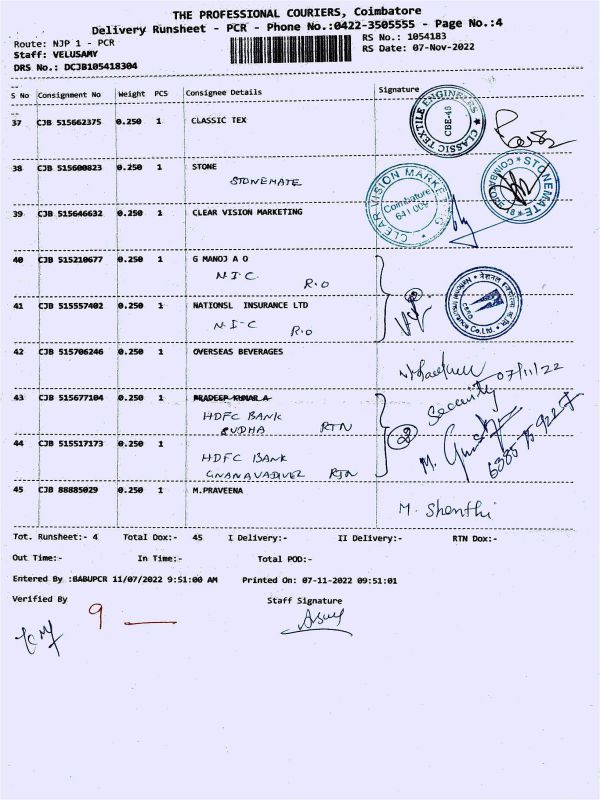 THE PROFESSIONAL COURIERS, Coimbatore
Delivery Runsheet - PCR - Phone No.:0422-3505555 - Page No.:4
Route: NJP 1 - PCR
RS No.: 1054183
Staff: VELUSAMY
RS Date: 07-Nov-2022
DRS No.: DCJB105418304
S No Consignment No Weight PCS Consignee Details Signature
37 CJB 515662375 0.250 1 CLASSIC TEX
CLASSIC TEXTILE ENGINEERS CBE-46
38 CJB 515600823 0.250 1 STONE
STONEMATE
STONEMATE COIMBATORE
39 CJB 515646632 0.250 1 CLEAR VISION MARKETING
CLEAR VISION MARKETING Coimbatore
40 CJB 515210677 0.250 1 G MANOJ A O
N.I.C. R.O
41 CJB 515557402 0.250 1 NATIONSL INSURANCE LTD
N.I-C R.O
42 CJB 515706246 0.250 1 OVERSEAS BEVERAGES
07/11/22
Security
43 CJB 515677104 0.250 1 PRADEEP KUMAR A
HDFC BANK
SUDHA RTN
44 CJB 515517173 0.250 1
HDFC BANK
GNANAVADIVEL RTN
45 CJB 88885029 0.250 1 M.PRAVEENA
M. Shenthi
Tot. Runsheet:- 4 Total Dox:- 45 I Delivery:- II Delivery:- RTN Dox:-
Out Time:- In Time:- Total POD:-
Entered By :BABUPCR 11/07/2022 9:51:00 AM Printed On: 07-11-2022 09:51:01
Verified By Staff Signature
9 —